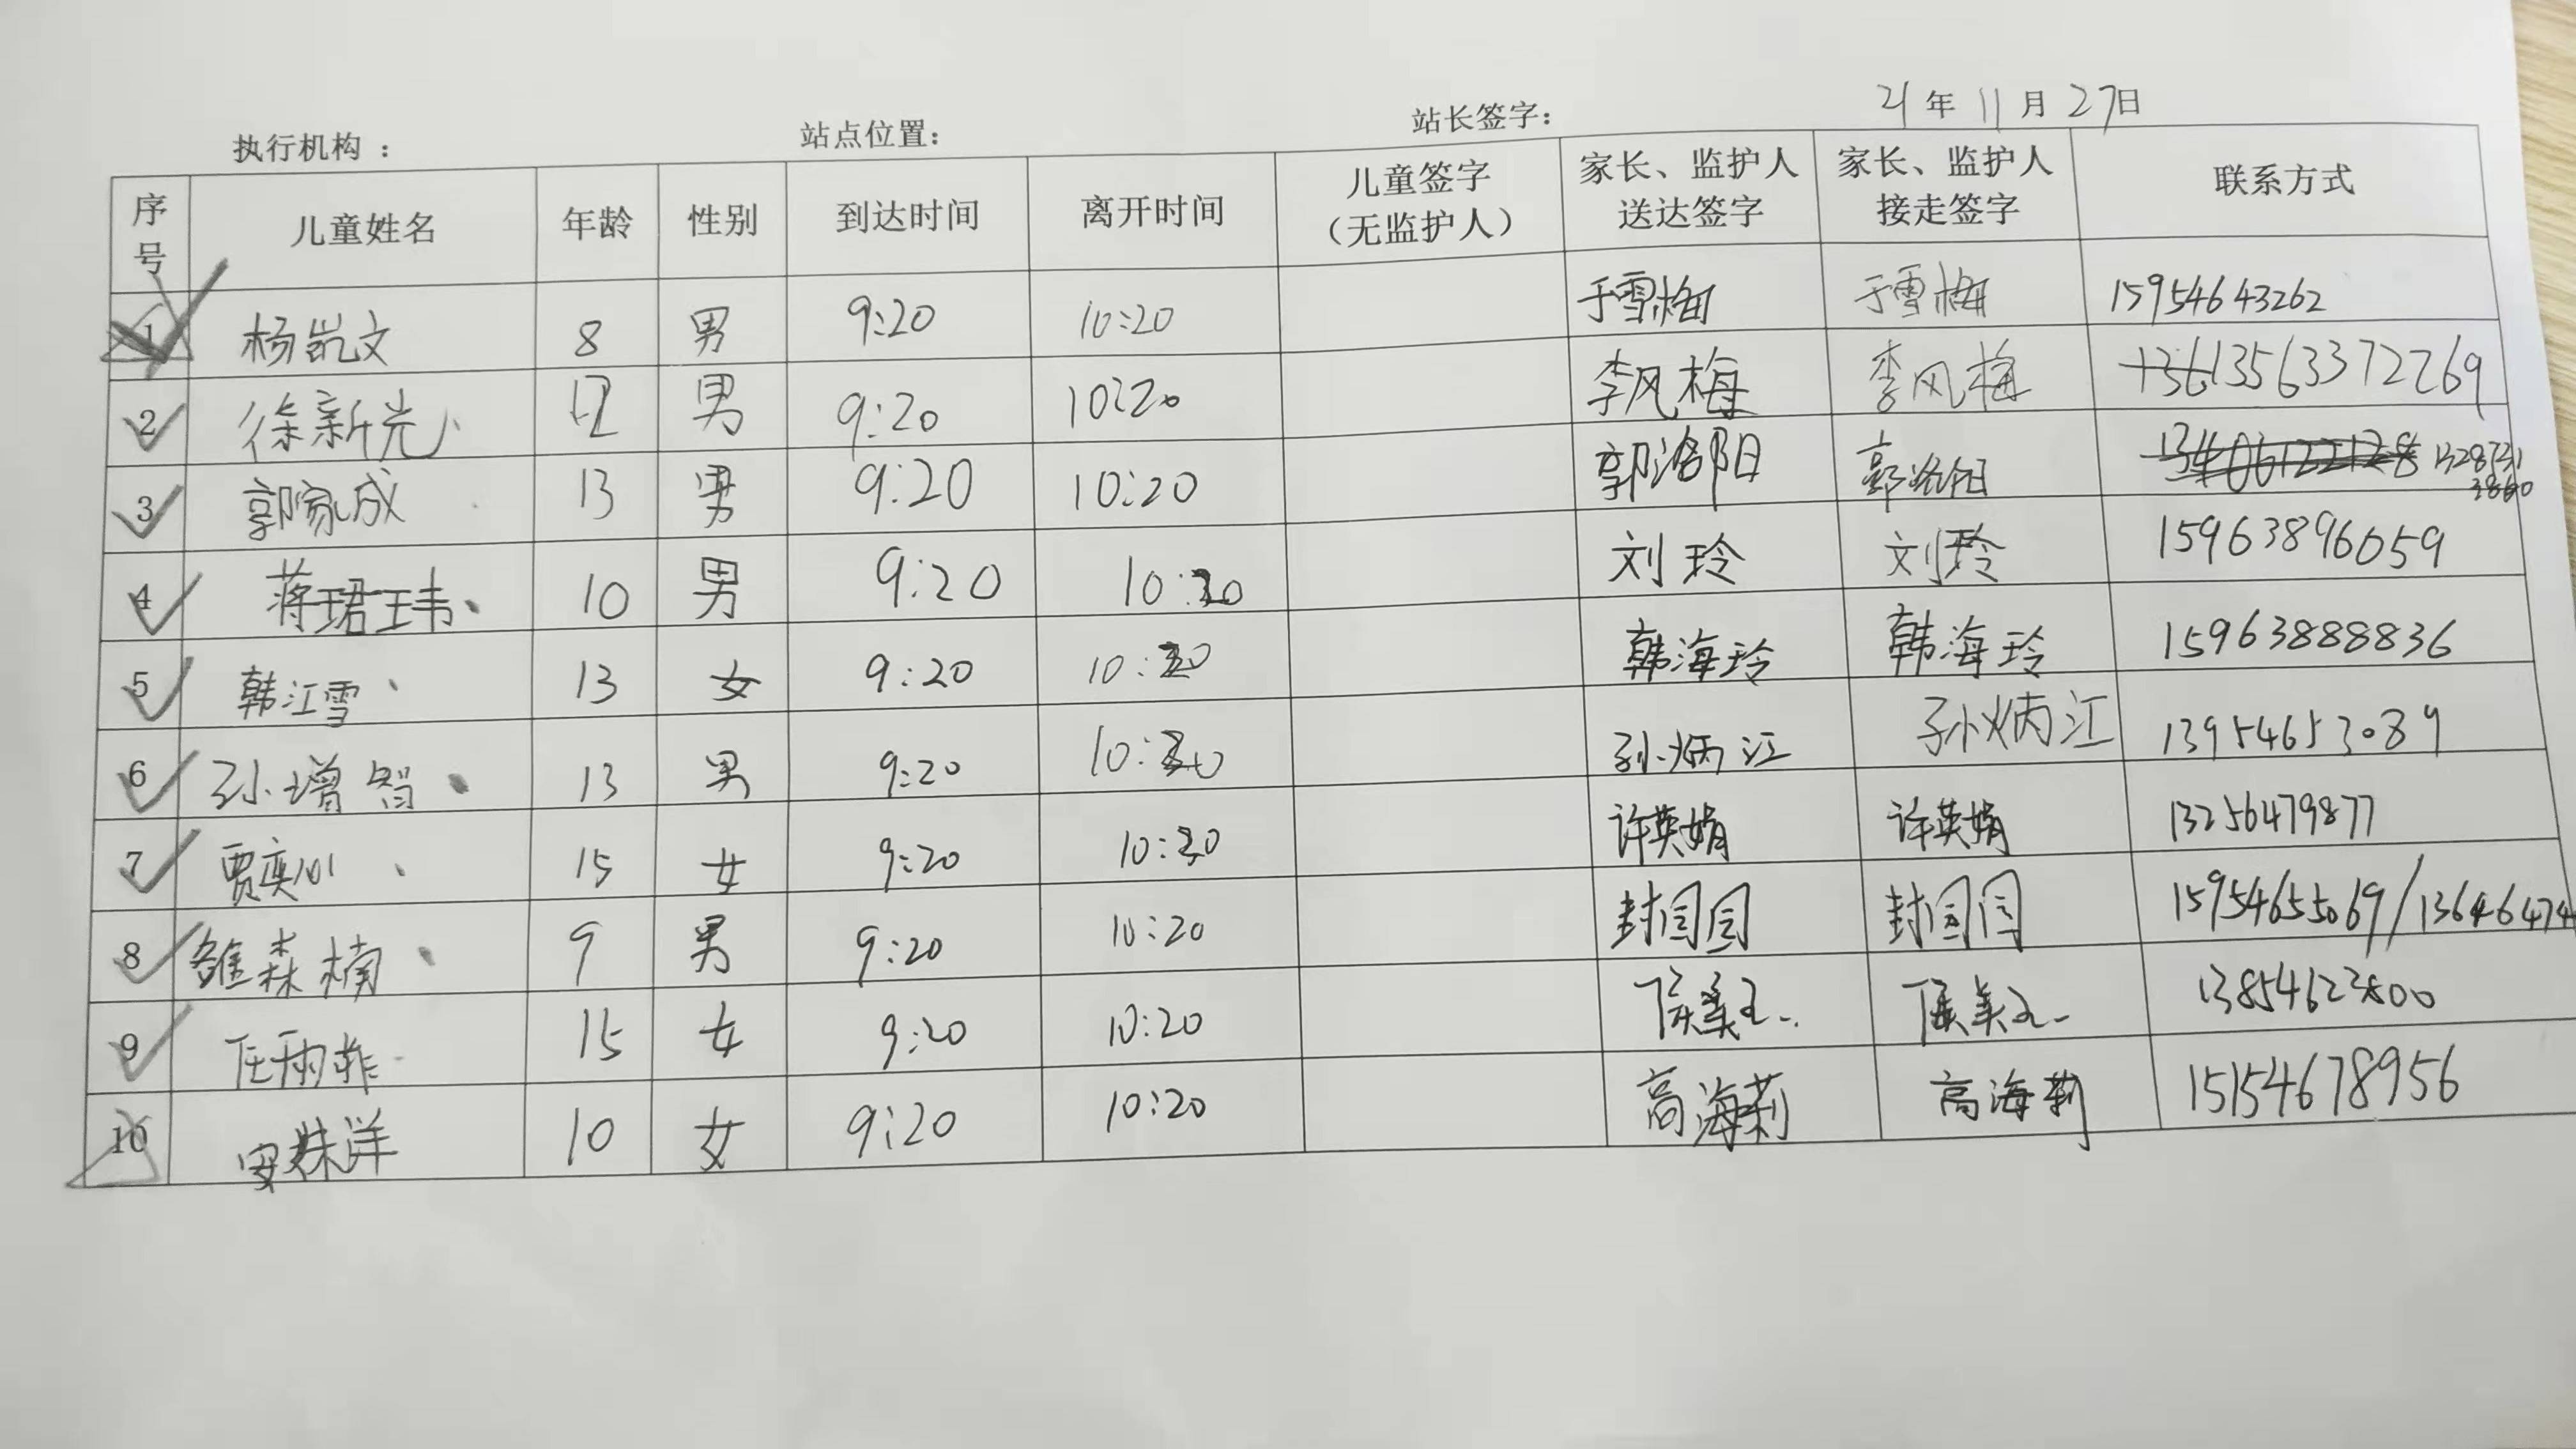 21年11月27日
执行机构： 站点位置： 站长签字：
序号 儿童姓名 年龄 性别 到达时间 离开时间 儿童签字（无监护人） 家长、监护人送达签字 家长、监护人接走签字 联系方式
1 杨凯文 8 男 9:20 10:20 于雪梅 于雪梅 15954643262
2 徐新光 12 男 9:20 10:20 李风梅 李风梅 13563372269
3 郭家成 13 男 9:20 10:20 郭洛阳 郭洛阳
4 蒋珺玮 10 男 9:20 10:20 刘玲 刘玲 15963896059
5 韩江雪 13 女 9:20 10:20 韩海玲 韩海玲 15963888836
6 孙增智 13 男 9:20 10:20 孙炳江 孙炳江 13954653089
7 贾奕 15 女 9:20 10:20 许英娟 许英娟 13256479877
8 森楠 9 男 9:20 10:20 封闫闫 封闫闫 15954655069/13646474
9 任雨菲 15 女 9:20 10:20 侯美玉 侯美玉 13854623800
10 安姝洋 10 女 9:20 10:20 高海莉 高海莉 15154678956